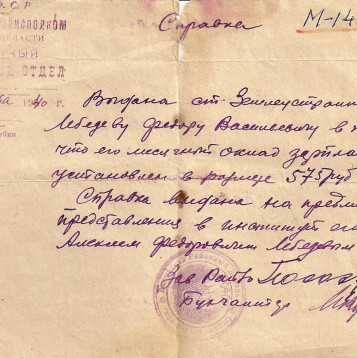 С. Р
Справка
М-14
ОТДЕЛ
40 г.
Выдана ст. Землеустрои
Лебедеву Федору Васильевичу в
что его месячный оклад зарпла
установлен в размере 575 руб
Справка выдана на предм
представления в институт его
Алексеем Федоровичем Лебедевым
Зав Райзо
Бухгалтер